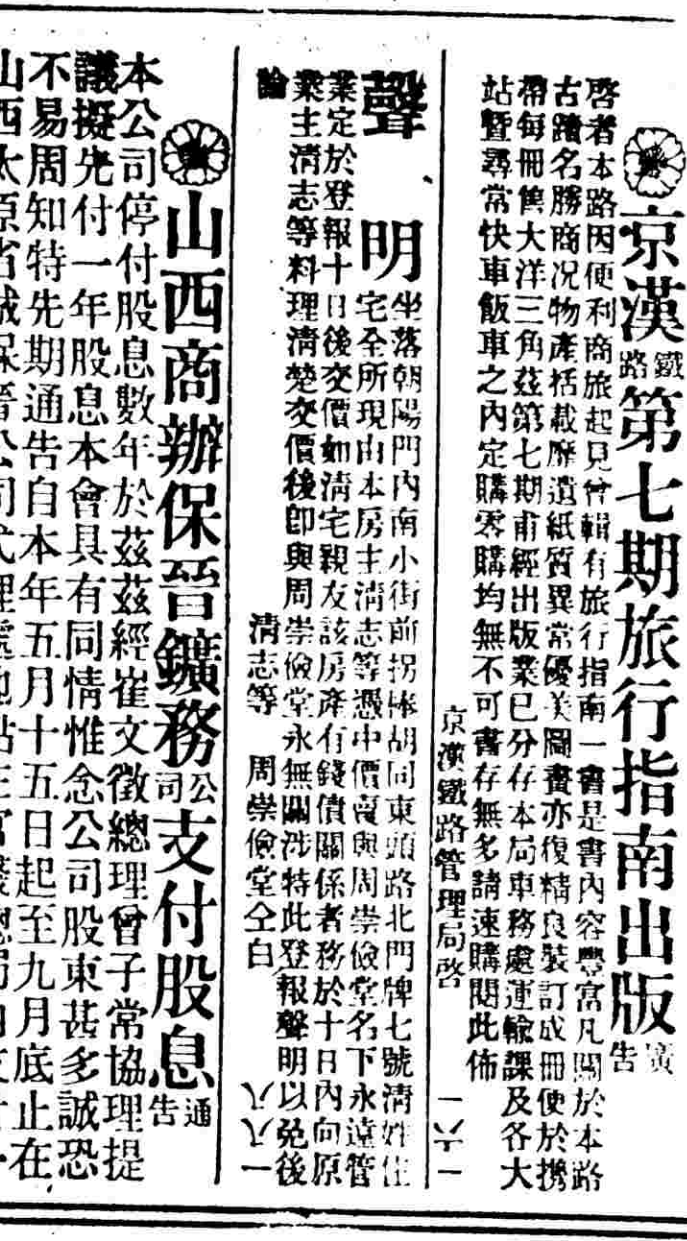 京漢鐵路第七期旅行指南出版廣告
啓者本路因便利商旅起見曾輯有旅行指南一書是書內容豐富凡關於本路
古蹟名勝商况物產括載靡遺紙質異常優美圖畫亦復精良裝訂成冊便於携
帶每冊售大洋三角茲第七期甫經出版業已分存本局車務處運輸課及各大
站暨尋常快車飯車之內定購零購均無不可書存無多請速購閱此佈
京漢鐵路管理局啓
一六一
聲明
坐落朝陽門內南小街前拐棒胡同東頭路北門牌七號清姓住
宅全所現由本房主清志等憑中價賣與周崇儉堂名下永遠管
業定於登報十日後交價如清宅親友該房產有錢債關係者務於十日內向原
業主清志等料理清楚交價後卽與周崇儉堂永無關涉特此登報聲明以免後
論
清志等 周崇儉堂仝白
八八一
山西商辦保晉鑛務公司支付股息通告
本公司停付股息數年於茲茲經崔文徵總理曾子常協理提
議擬先付一年股息本會具有同情惟念公司股東甚多誠恐
不易周知特先期通告自本年五月十五日起至九月底止在
山西太原省城保晉公司